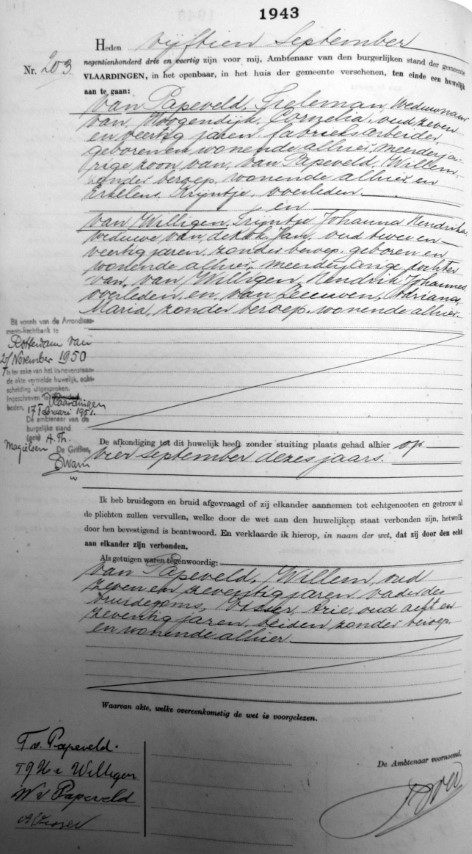 1943
Heden vijftien September
negentienhonderd drie en veertig zijn voor mij, Ambtenaar van den burgerlijken stand der gemeente
Nr. 203
VLAARDINGEN, in het openbaar, in het huis der gemeente verschenen, ten einde een huwelijk
aan te gaan:
van Papeveld, Tieleman, weduwnaar
van Hoogendijk, Cornelia, oud zeven
en veertig jaren, fabrieksarbeider,
geboren en wonende alhier, meerderja-
rige zoon van, van Papeveld, Willem,
zonder beroep, wonende alhier en
Krijntje, overleden
en
van Willigen, Trijntje Johanna Hendrika
weduwe van Jan, oud twee en
veertig jaren, zonder beroep, geboren en
wonende alhier, meerderjarige dochter
van, van Willigen, Hendrik Johannes
overleden, en, van Leeuwen, Adriana
Maria, zonder beroep, wonende alhier
Bij vonnis van de Arrondisse-
ments-Rechtbank te
Rotterdam van
27 November 1950
is ten aanzien van het
de akte vermelde huwelijk, echt-
scheiding uitgesproken.
Ingeschreven Vlaardingen
heden, 17 Februari 1951.
De ambtenaar van de
burgerlijke stand
A. Th.
De Griffier,
De afkondiging tot dit huwelijk heeft zonder stuiting plaats gehad alhier op
vier September dezes jaars.
Ik heb bruidegom en bruid afgevraagd of zij elkander aannemen tot echtgenooten en getrouw al
de plichten zullen vervullen, welke door de wet aan den huwelijken staat verbonden zijn, hetwelk
door hen bevestigend is beantwoord. En verklaarde ik hierop, in naam der wet, dat zij door den echt
aan elkander zijn verbonden.
Als getuigen waren tegenwoordig:
van Papeveld, Willem, oud
zeven en zeventig jaren, vader des
bruidegoms, Visser, Arie, oud acht en
zeventig jaren, beiden zonder beroep
en wonende alhier
Waarvan akte, welke overeenkomstig de wet is voorgelezen.
T. v. Papeveld.
T J H v Willigen
W v Papeveld
A Visser
De Ambtenaar voornoemd,